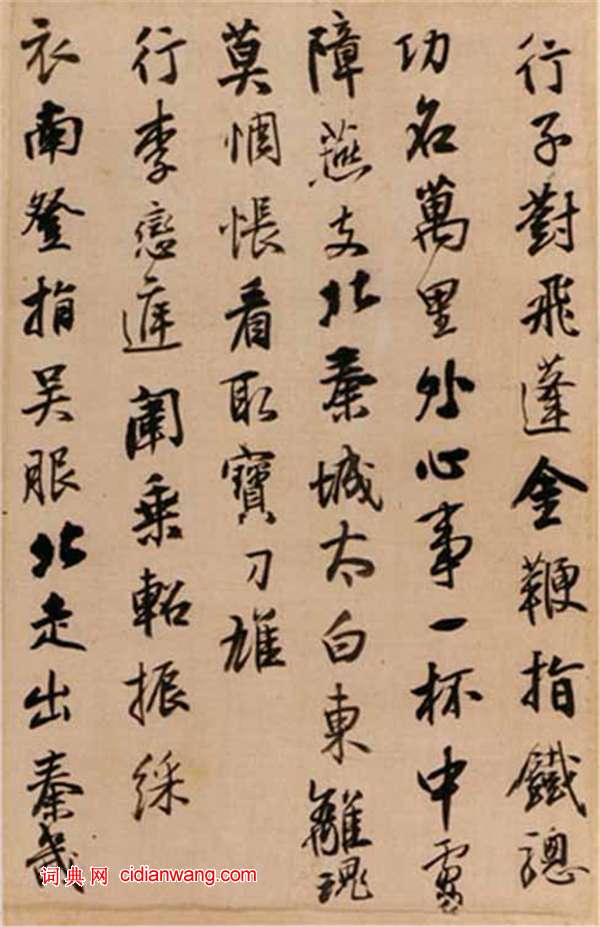 行子對飛蓬金鞭指鐵驄
功名萬里外心事一杯中虜
障燕支北秦城太白東離魂
莫惆悵看取寶刀雄
行李戀庭闈乘軺振綵
衣南登指吳服北走出秦畿
词典网 cidianwang.com